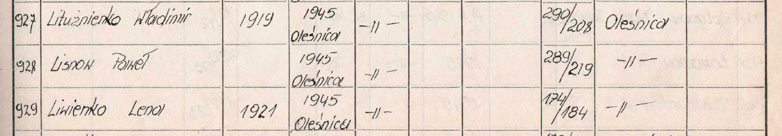 927 Lituźnienko Władimir 1919 1945 Oleśnica -//- 290/208 Oleśnica
928 Lisnow Paweł 1945 Oleśnica -//- 289/219 -//-
929 Liwienko Lena 1921 1945 Oleśnica -//- 174/184 -//-